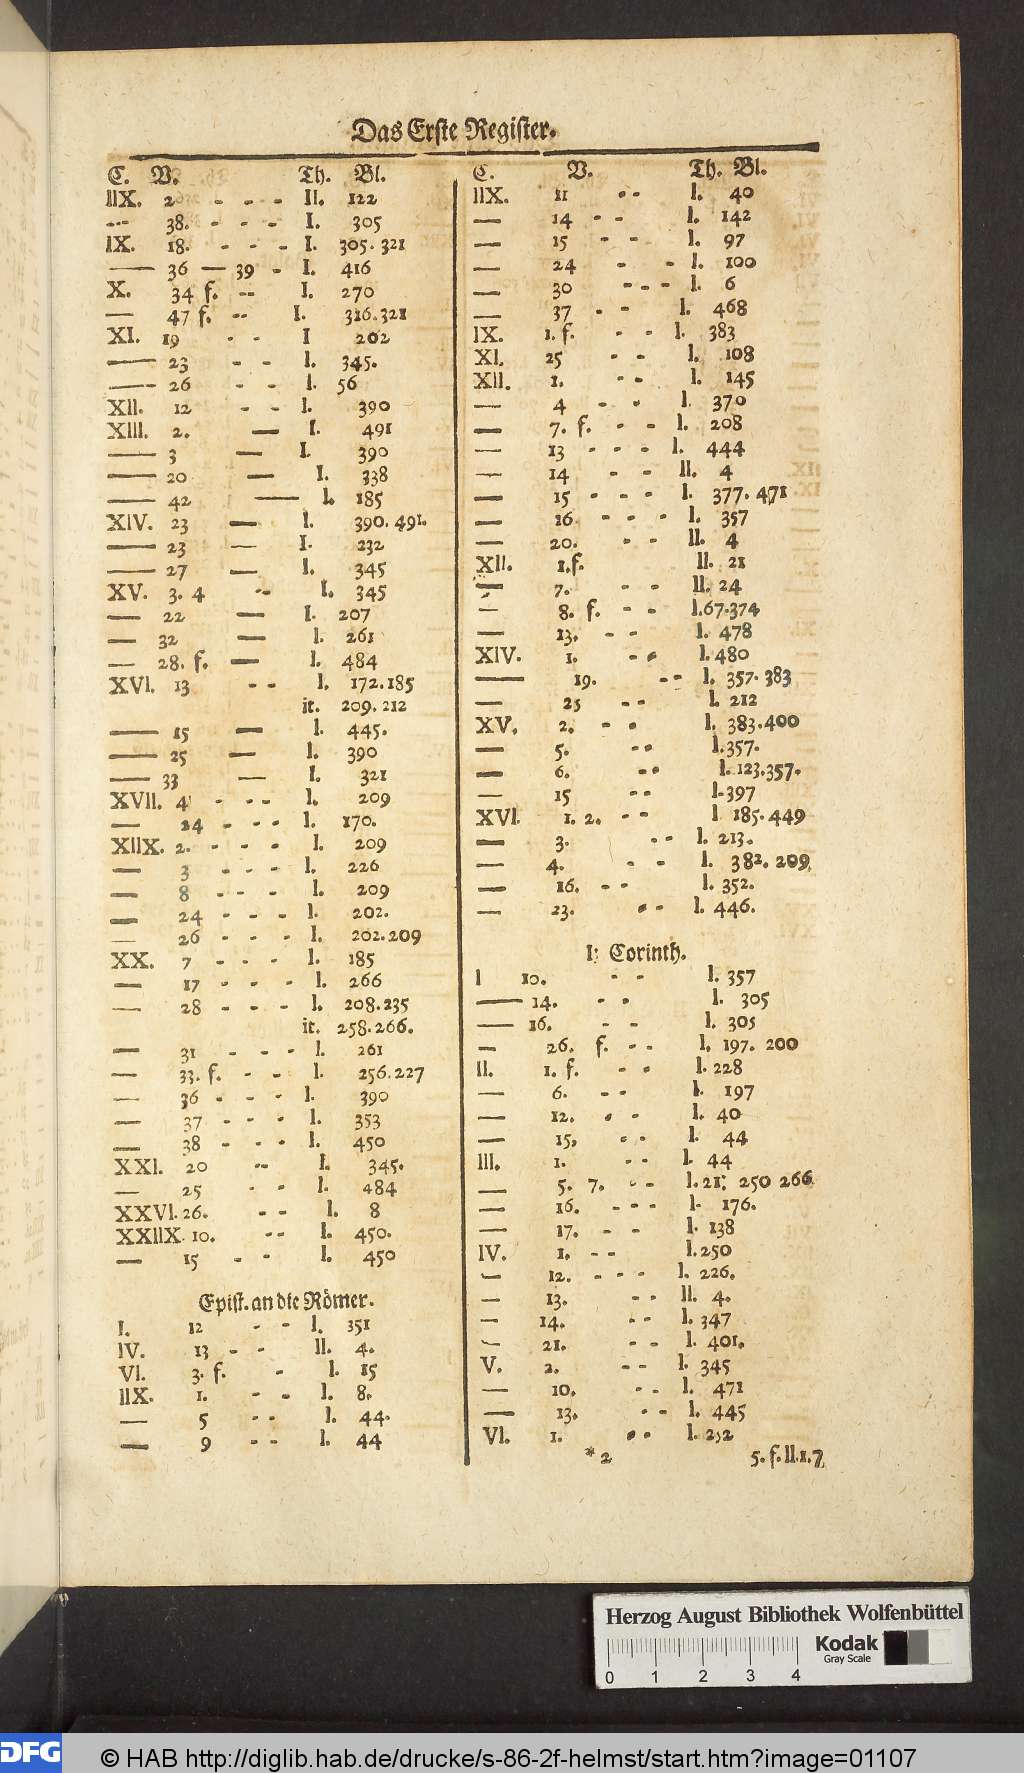 Das Erste Register.
C. V. Th. Bl.
IIX. 2 - - - II. 122
--- 38. - - - I. 305
IX. 18. - - - I. 305. 321
— 36 — 39 - I. 416
X. 34 f. -- I. 270
— 47 f. -- I. 316.321
XI. 19 - - I 202
— 23 - - I. 345.
— 26 - - I. 56
XII. 12 - - I. 390
XIII. 2. — I. 491
— 3 — I. 390
— 20 — I. 338
— 42 — I. 185
XIV. 23 — I. 390. 491.
— 23 — I. 232
— 27 — I. 345
XV. 3. 4 -- I. 345
— 22 — I. 207
— 32 — I. 261
— 28. f. — I. 484
XVI. 13 -- I. 172.185
it. 209. 212
— 15 — I. 445.
— 25 — I. 390
— 33 — I. 321
XVII. 4 - -- I. 209
— 24 - - - I. 170.
XIIX. 2. - - - I. 209
— 3 - - - I. 226
— 8 - - - I. 209
— 24 - - - I. 202.
— 26 - - - I. 202.209
XX. 7 - - - I. 185
— 17 - - - I. 266
— 28 - - - I. 208.235
it. 258.266.
— 31 - - - I. 261
— 33. f. - - I. 256.227
— 36 - - - I. 390
— 37 - - - I. 353
— 38 - - - I. 450
XXI. 20 -- I. 345.
— 25 - - I. 484
XXVI. 26. - - I. 8
XXIIX. 10. -- I. 450.
— 15 - - I. 450
Epist. an die Römer.
I. 12 - - I. 351
IV. 13 - - II. 4.
VI. 3. f. - I. 15
IIX. 1. - - I. 8.
— 5 -- I. 44.
— 9 -- I. 44
C. V. Th. Bl.
IIX. 11 -- I. 40
— 14 - - I. 142
— 15 - - I. 97
— 24 - - I. 100
— 30 --- I. 6
— 37 - - I. 468
IX. 1. f. - - I. 383
XI. 25 - - I. 108
XII. 1. -- I. 145
— 4 - - I. 370
— 7. f. - - I. 208
— 13 - - - I. 444
— 14 - - II. 4
— 15 - - - I. 377. 471
— 16 - - - I. 357
— 20. - - II. 4
XII. 1.f. II. 21
— 7. - - II. 24
— 8. f. - - I.67.374
— 13. - - I. 478
XIV. 1. -- I. 480
— 19. -- I. 357. 383
— 25 -- I. 212
XV. 2. - - I. 383.400
— 5. -- I.357.
— 6. -- I.123.357.
— 15 -- I.397
XVI. 1. 2. - - I 185.449
— 3. -- I. 213.
— 4. - - I. 382. 209.
— 16. -- I. 352.
— 23. -- I. 446.
I: Corinth.
I 10. -- I. 357
— 14. - - I. 305
— 16. - - I. 305
— 26. f. -- I. 197. 200
II. 1. f. - - I. 228
— 6. -- I. 197
— 12. - - I. 40
— 15. -- I. 44
III. 1. -- I. 44
— 5. 7. -- I.21: 250 266
— 16. --- I. 176.
— 17. - -- I. 138
IV. 1. -- I.250
— 12. - - - I. 226.
— 13. -- II. 4.
— 14. -- I. 347
— 21. -- I. 401.
V. 2. -- I. 345
— 10. -- I. 471
— 13. -- I. 445
VI. 1. -- I. 232
* 2 5. f. II.1.7
Herzog August Bibliothek Wolfenbüttel
Kodak
Gray Scale
0 1 2 3 4
DFG
© HAB http://diglib.hab.de/drucke/s-86-2f-helmst/start.htm?image=01107